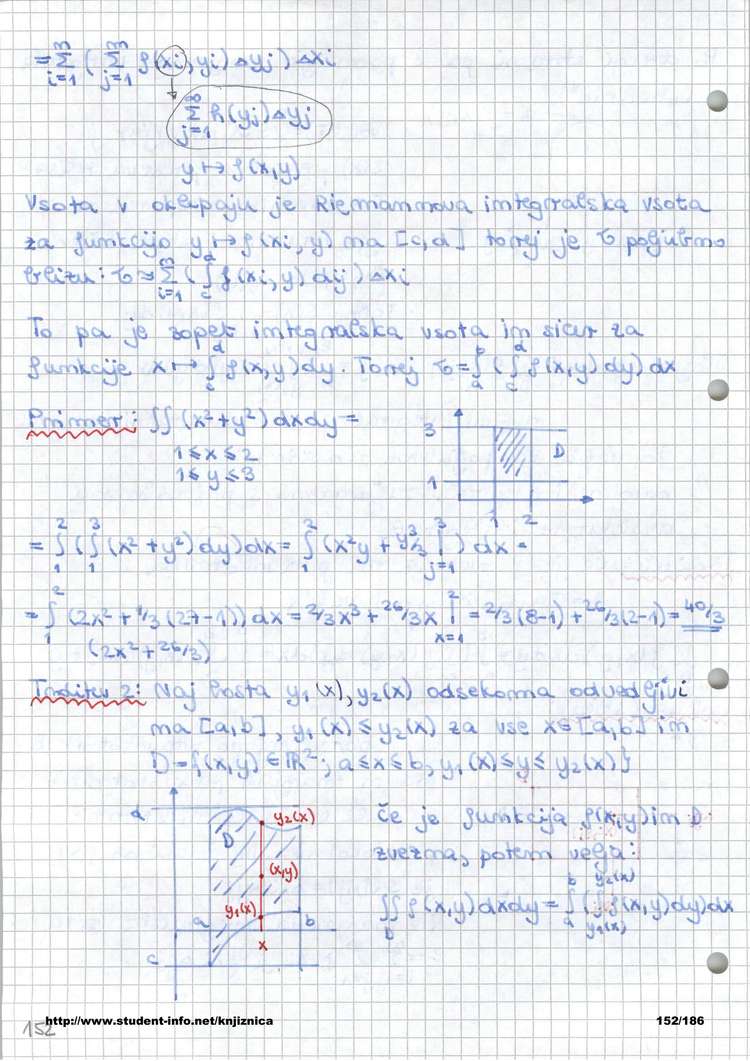 = m∑i=1 ( m∑j=1 f(xi, yi) Δyj) Δxi
∞∑j=1 h(yj) Δyj
y ↦ f(x,y)
Vsota v oklepaju je Riemannova integralska vsota
za funkcijo y ↦ f(xi, y) na [c,d] torej je σ poljubno
blizu: σ ≈ m∑i=1 (∫c^d f(xi, y) dy) Δxi
To pa je zopet integralska vsota in sicer za
funkcije x ↦ ∫c^d f(x,y)dy. Torej σ = ∫a^b (∫c^d f(x,y) dy) dx
Primer: ∬ (x²+y²) dxdy =
1 ≤ x ≤ 2
1 ≤ y ≤ 3
3
D
1
1 2
= ∫1^2 (∫1^3 (x²+y²) dy) dx = ∫1^2 (x²y + y³/3 |j=1^3 ) dx =
= ∫1^2 (2x² + 1/3 (27-1)) dx = 2/3 x³ + 26/3 x |x=1^2 = 2/3 (8-1) + 26/3 (2-1) = 40/3
(2x² + 26/3)
Trditev 2: Naj bosta y1(x), y2(x) odsekoma odvedljivi
na [a,b], y1(x) ≤ y2(x) za vse x∈[a,b] in
D = {(x,y) ∈ ℝ²; a ≤ x ≤ b, y1(x) ≤ y ≤ y2(x)}
d
y2(x)
D
(x,y)
y1(x)
a
b
x
c
Če je funkcija f(x,y) in D
zvezna, potem velja:
∬D f(x,y) dxdy = ∫a^b (∫y1(x)^y2(x) f(x,y) dy) dx
152
http://www.student-info.net/knjiznica
152/186